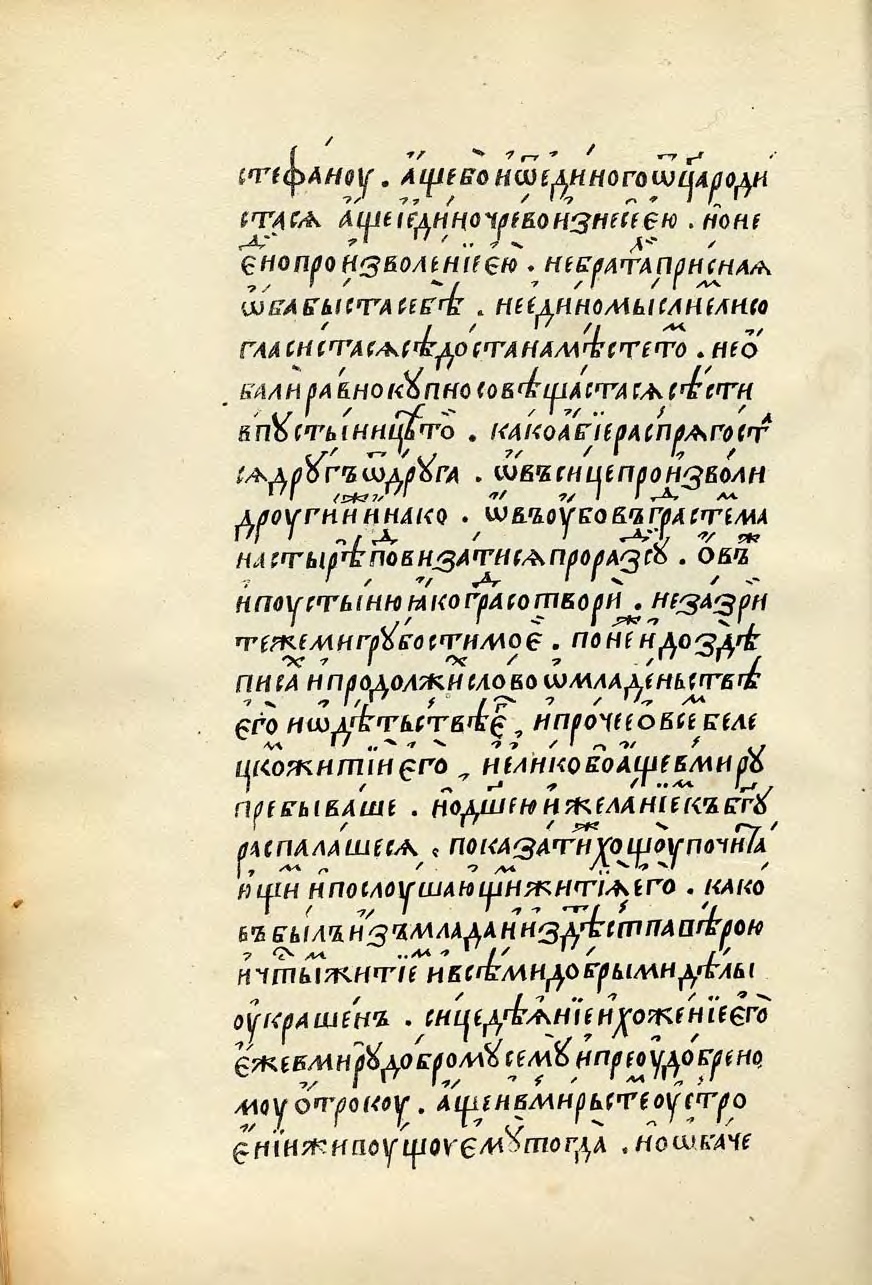 стефаноу . а҆ще бо и҆ ѿ є҆ди́ного ѿц҃а роди
стася а҆ще и҆ є҆ди́но чре́во и҆знесе є҆ю . но не
є҆дⷩ҇о прои҆зволе́нїе є҆ю̀ . не бра́та ли приснаѧ
ѻ҆ба бы́ста себѣ̀ . не є҆ди́номы́слиⷨ ли со
гласистасѧ сѣдоста на мѣ́стеⷨ то̀ . не ѻ҆́
ба ли ра́вно кꙋ́пно совѣща́стасѧ сѣ́сти
в пꙋсты́ницы то̀ . ка́ко а҆́бїе распрѧго́стⷶ
сѧ дрꙋ́гъ ѿ дрꙋ́га . ѻ҆́въ си́це прои҆зво́ли
дроугі́и ж и҆́на́ко . ѻ҆́въ оу҆́бо въ гра́ⷣстеⷨ ма
настырѣ̀ поⷣвиза́тисѧ про раⷥсꙋⷣ . ѻ҆́въ ж
и пꙋсты́ню ꙗ҆́ко граⷣ сотвори̇̀ . не за́зри
те же ми грꙋ́бости мое̑й . поне́ⷤ и҆ до здѣ̀
писаⷯ и҆ продо́лжиⷯ сло́во ѡ҆ младе́ньствѣ
є҆го̀ и҆ ѡ҆ дѣ́тьствѣ є҆гⷪ҇ , и҆ про́чее ѻ҆ всеⷨ беле
цкоⷨ житїи є҆го̀ , є҆ли́ко бо а҆́ще в миⷬ҇ꙋ
пребыва́ше . но̀ дш҃ею и҆ жела́нїеⷨ къ бг҃ꙋ
распала́шесѧ , показа́ти ж хощꙋ̀ почита́
ющиⷨ и҆ послоуша́ющиⷨ житїѧ̀ є҆го̀ . ка́ко
въ бы́лъ и҆зъ мла́да и҆ и҆з дѣ́тства вѣ́рою
и҆ чⷭ҇тыⷨ житїеⷨ и҆ всѣ́ми до́брыми дѣ́лы
оу҆кра́шенъ . си́це дѣѧ́нїе и҆ хоже́нїе є҆го̀
є҆́же в ми́рꙋ до́бромꙋ семꙋ̀ и҆ преоу҆до́брено
моу ѻ҆́трокоу . а҆́ще и҆ в мирьстеⷨ оу҆стро
є҆́нїи живоу́щоу є҆мꙋ̀ тогда̀ . но̀ ѡ҆ба́че